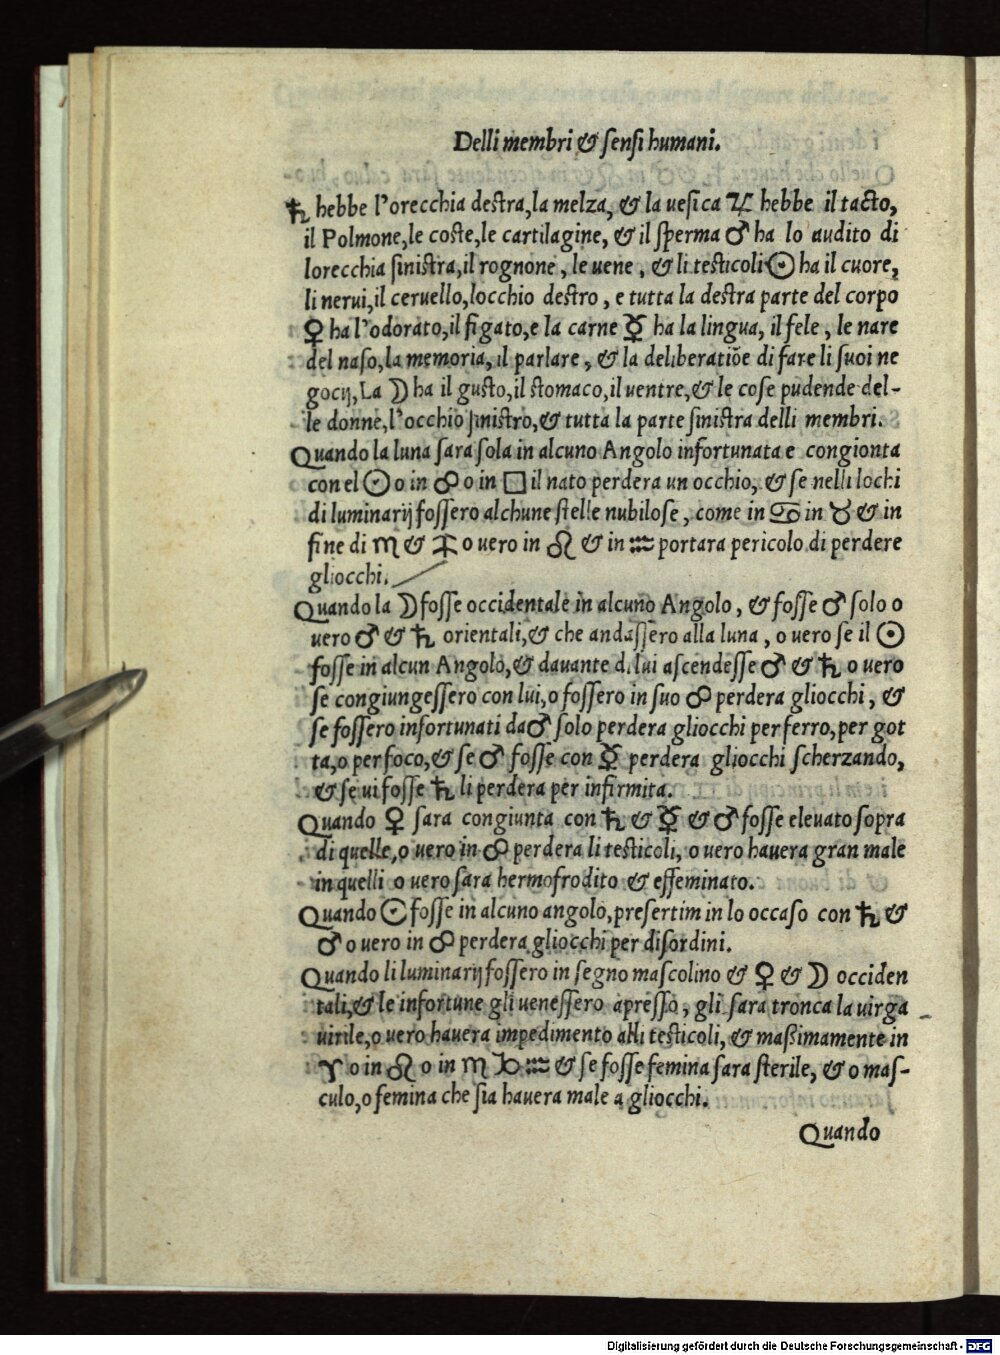 Delli membri & ſenſi humani.
♄ hebbe l'orecchia deſtra,la melza, & la ueſica ♃ hebbe il tacto,
il Polmone,le coſte,le cartilagine, & il ſperma ♂ ha lo audito di
lorecchia ſiniſtra,il rognone , le uene , & li teſticoli ☉ ha il cuore,
li nerui,il ceruello,locchio deſtro , e tutta la deſtra parte del corpo
♀ ha l'odorato,il figato,e la carne ☿ ha la lingua, il fele , le nare
del naſo,la memoria, il parlare , & la deliberatiõe di fare li ſuoi ne
gocij, La ☽ ha il guſto,il ſtomaco,il uentre,& le coſe pudende del-
le donne,l'occhio ſiniſtro,& tutta la parte ſiniſtra delli membri.
Quando la luna ſara ſola in alcuno Angolo infortunata e congionta
con el ☉ o in ☍ o in □ il nato perdera un occhio, & ſe nelli lochi
di luminarij foſſero alchune ſtelle nubiloſe , come in ♋ in ♉ & in
fine di ♏ & ♐ o uero in ♌ & in ♒ portara pericolo di perdere
gliocchi.
Quando la ☽ foſſe occidentale in alcuno Angolo , & foſſe ♂ ſolo o
uero ♂ & ♄ orientali,& che andaſſero alla luna , o uero ſe il ☉
foſſe in alcun Angolo,& dauante di lui aſcendeſſe ♂ & ♄ o uero
ſe congiungeſſero con lui,o foſſero in ſuo ☍ perdera gliocchi , &
ſe foſſero infortunati da ♂ ſolo perdera gliocchi per ferro,per got
ta,o per foco,& ſe ♂ foſſe con ☿ perdera gliocchi ſcherzando,
& ſe ui foſſe ♄ li perdera per infirmita.
Quando ♀ ſara congiunta con ♄ & ☿ & ♂ foſſe eleuato ſopra
di quelle,o uero in ☍ perdera li teſticoli, o uero hauera gran male
in quelli o uero ſara hermofrodito & effeminato.
Quando ☉ foſſe in alcuno angolo,preſertim in lo occaſo con ♄ &
♂ o uero in ☍ perdera gliocchi per diſordini.
Quando li luminarij foſſero in ſegno maſcolino & ♀ & ☽ occiden
tali,& le infortune gli ueneſſero apreſſo , gli ſara tronca la uirga
uirile,o uero hauera impedimento alli teſticoli, & maßimamente in
♈ o in ♌ o in ♏ ♑ ♒ & ſe foſſe femina ſara ſterile, & o maſ-
culo,o femina che ſia hauera male a gliocchi.
Quando
Digitalisierung gefördert durch die Deutsche Forschungsgemeinschaft - DFG